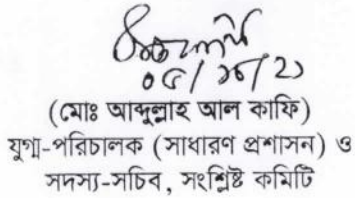 ০৫/১২/২১
(মোঃ আব্দুল্লাহ আল কাফি)
যুগ্ম-পরিচালক (সাধারণ প্রশাসন) ও
সদস্য-সচিব, সংশ্লিষ্ট কমিটি